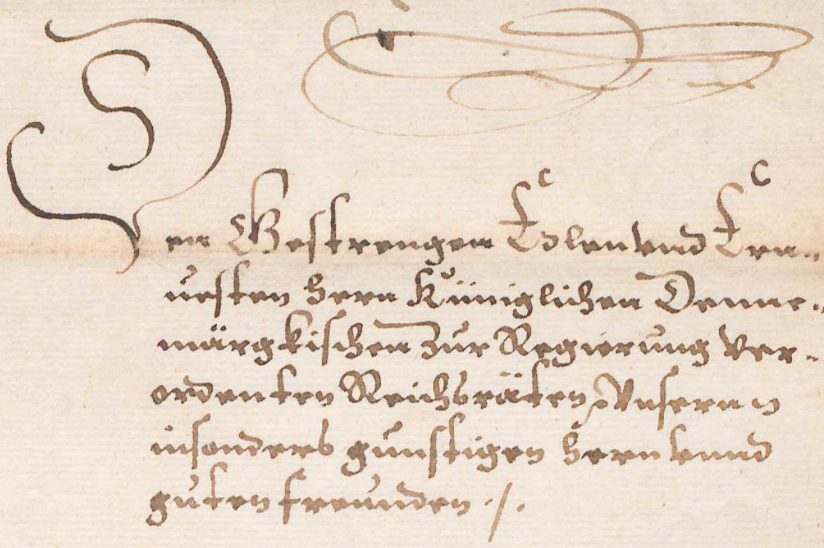 Den Gestrengen Edlen vnd Ern¬
uesten hern Küniglichen Denne¬
märgkischen zur Regierung ver¬
ordenten Reichsräten, Vnsernn
insonders gunstigen hern vnnd
guten freunden ./.